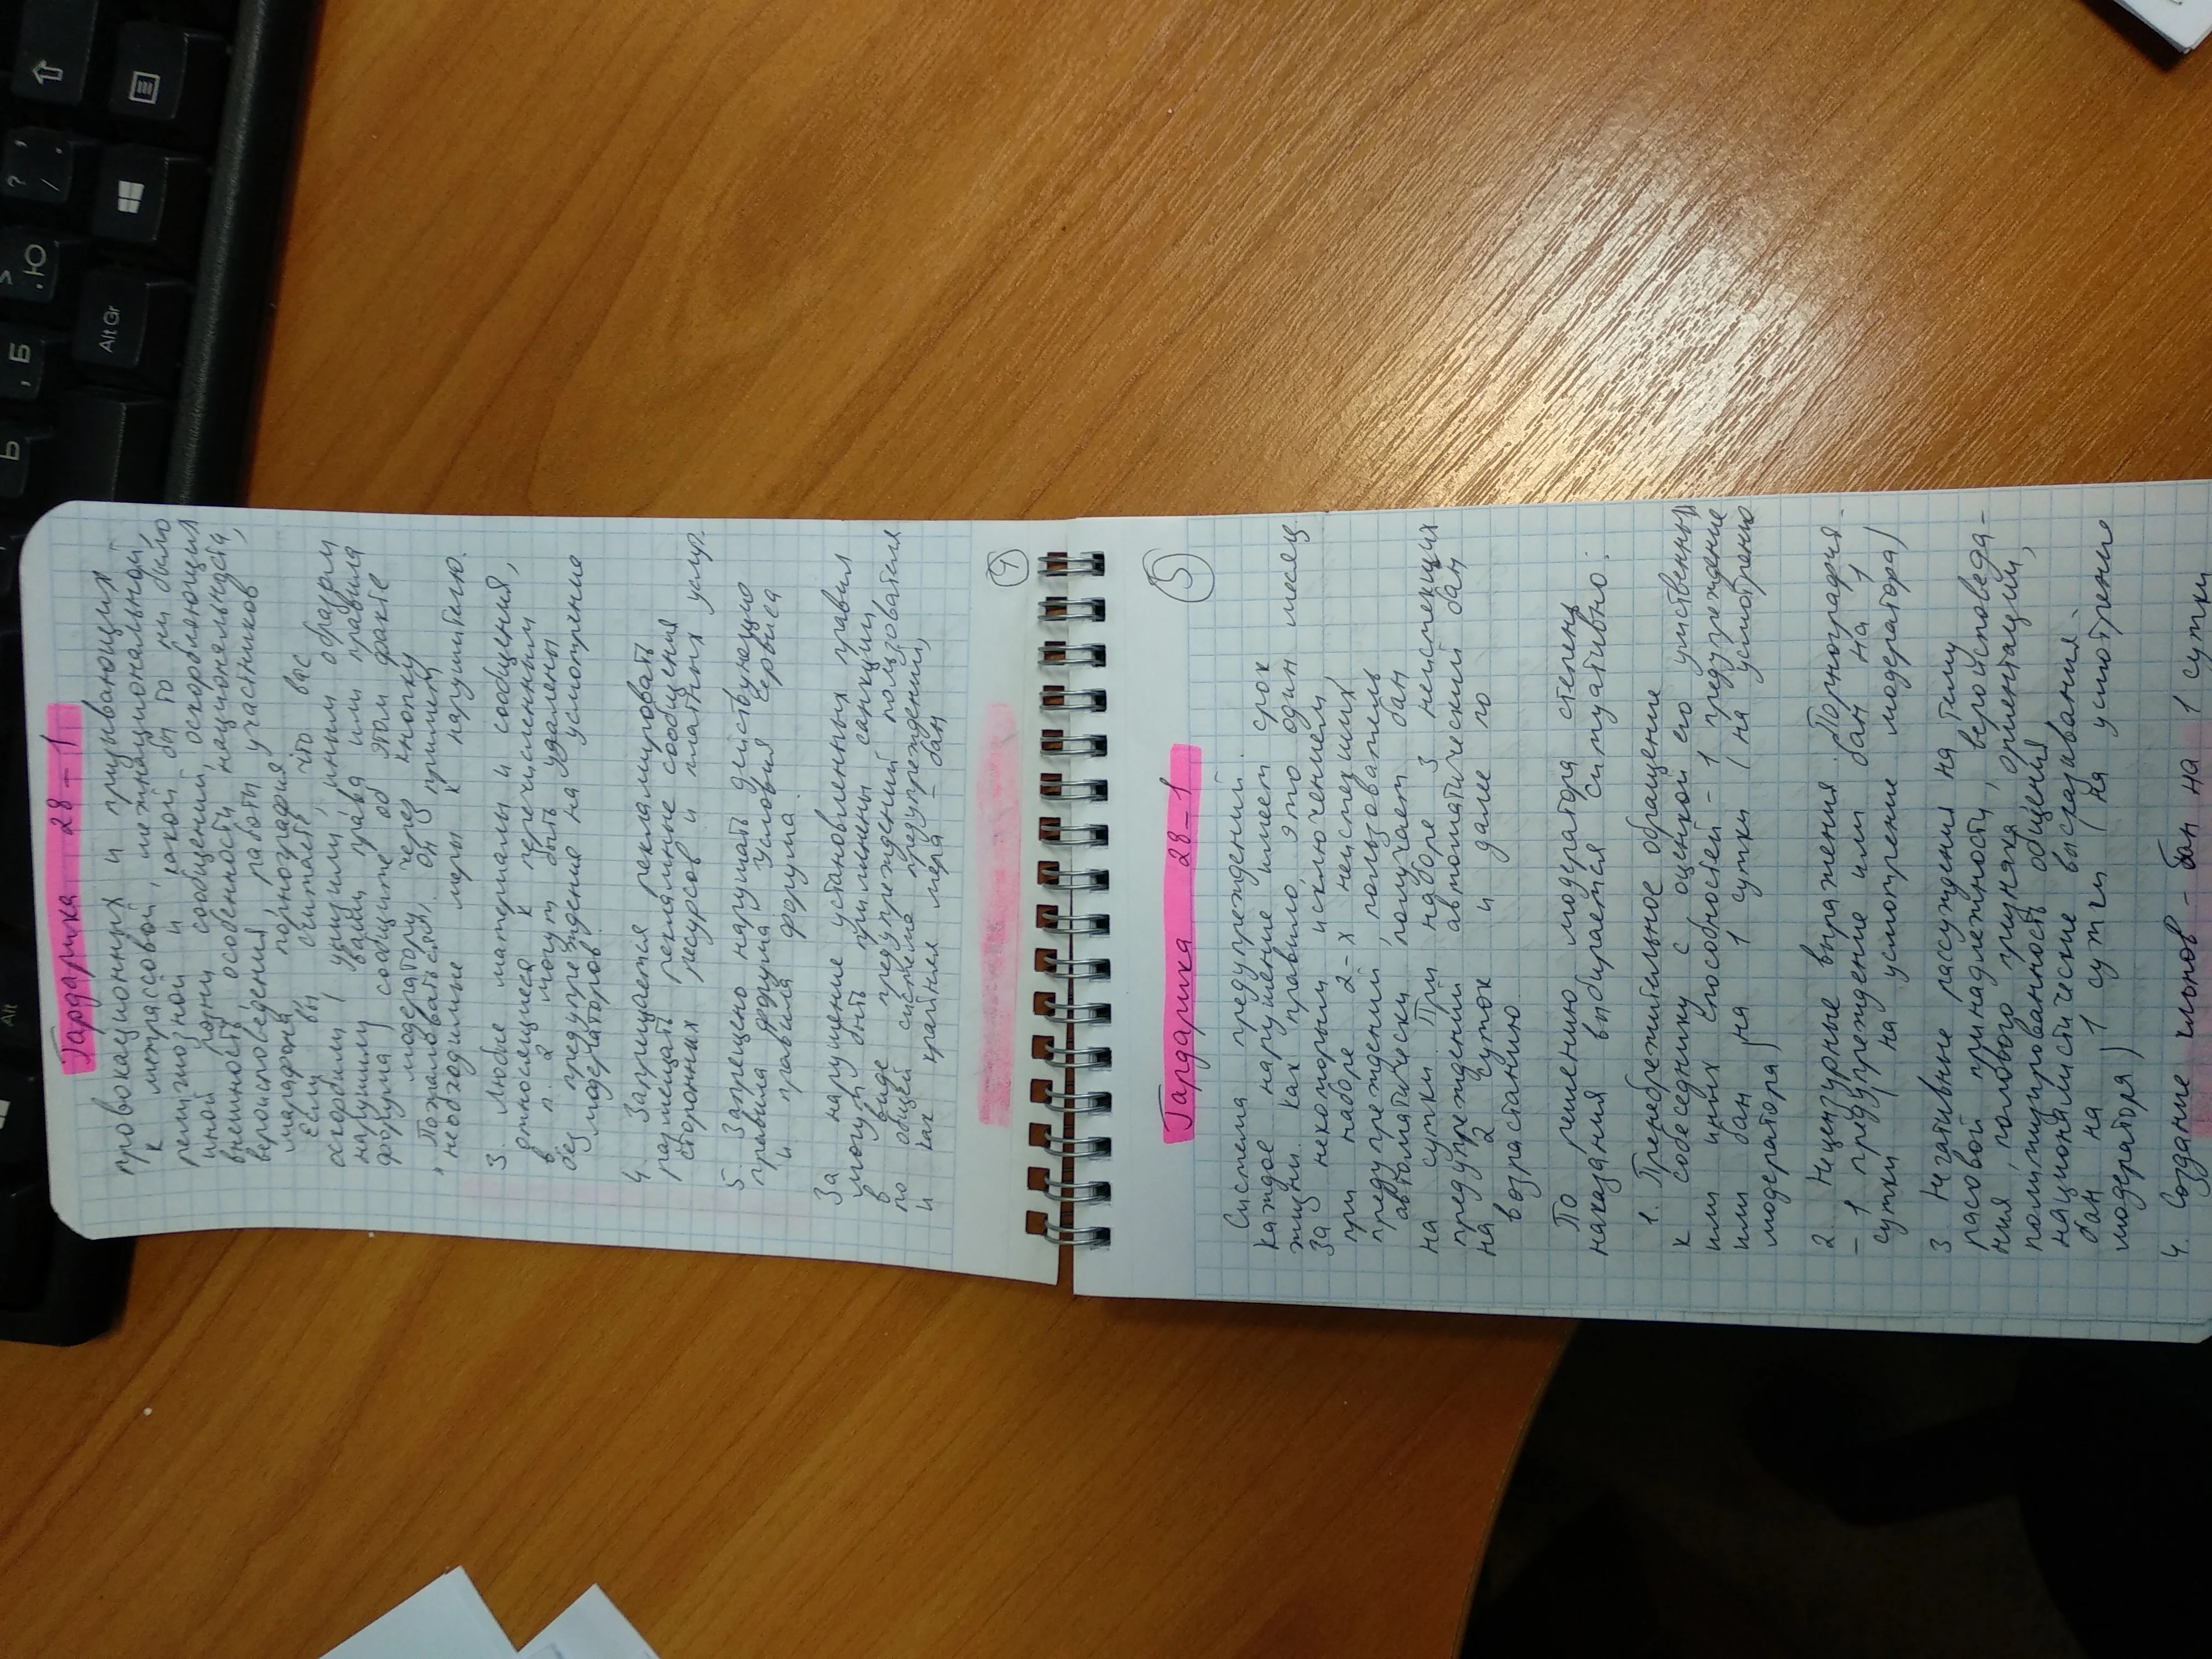 Гардарика 28-1
провокационных и призывающих
к метрасовой, межнациональной,
религиозной и какой бы то ни было
иной розни сообщений, оскорбляющих
внешность, особенности, национальность,
вероисповедения, работы участников
марафона, порнография.
Если вы считаете что вас
оскорбили / унизили / иным образом
нарушили ваши права или правила
форума, сообщите об этом факте
модератору, через кнопку
"Пожаловаться", он применит
необходимые меры к нарушителю.
3. Любые материалы и сообщения,
относящиеся к перечисленным
в п. 2 могут быть удалены
без предупреждению на усмотрение
модераторов.
4. Запрещается рекламировать
размещать рекламные сообщения
сторонних ресурсов и платных услуг.
5. Запрещено нарушать действующие
правила форума условия сервиса
и правила форума.
За нарушение установленных правил
могут быть применены санкции
в виде предупреждений пользователя
по общей системе предупреждений,
и как крайняя мера - бан
4
5
Гардарика 28-1
Система предупреждений.
каждое нарушение имеет срок
жизни. как правило, это один месяц
за некоторым исключением,
при наборе 2-х неистекших
предупреждений, пользователь
автоматически получает бан
на сутки. При наборе 3 неистекших
предупреждений автоматический бан
на 2 суток и далее по
возрастанию.
По решению модератора степень
наказания выбирается ситуативно:
1. Пренебрежительное обращение
к собеседнику с оценкой его умственных
или иных способностей - 1 предупреждение
или бан на 1 сутки ( на усмотрению
модератора)
2. Нецензурные выражения. Порнография.
- 1 предупреждение или бан на 1
сутки ( на усмотрение модератора)
3 Негативные рассуждения на тему
расовой принадлежности, веройсповеда-
ния, полового признака, ориентации,
политизированность общения
националистические высказывания.
бан на 1 сутки (на усмотрение
модератора)
4. Создание клонов - бан на 1 сутки
Alt Gr
Alt
Б
Ю
Ь